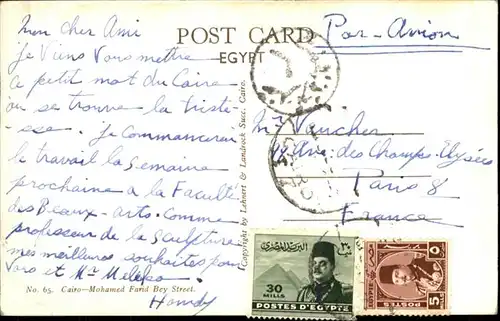 Mon cher Ami
Je Viens Vous mettre
ce petit mot du Caire
où se trouve la triste-
sse. Je Commencerai
le travail la Semaine
prochaine a la Faculté
des Beaux-arts. Comme
professeur de la Sculpture
mes meilleurs souhaites pour
Vous et Mr
Hamdy
No. 65. Cairo—Mohamed Farid Bey Street.
Copyright by Lehnert & Landrock Succ. Cairo.
POST CARD
EGYPT
Par-Avion
Mr Vaucher
Ave des Champs-Elysées
Paris 8
France
البريد المصرى
٣٠
30
MILLS
POSTES D'EGYPTE
EGYPTE
5
POSTES